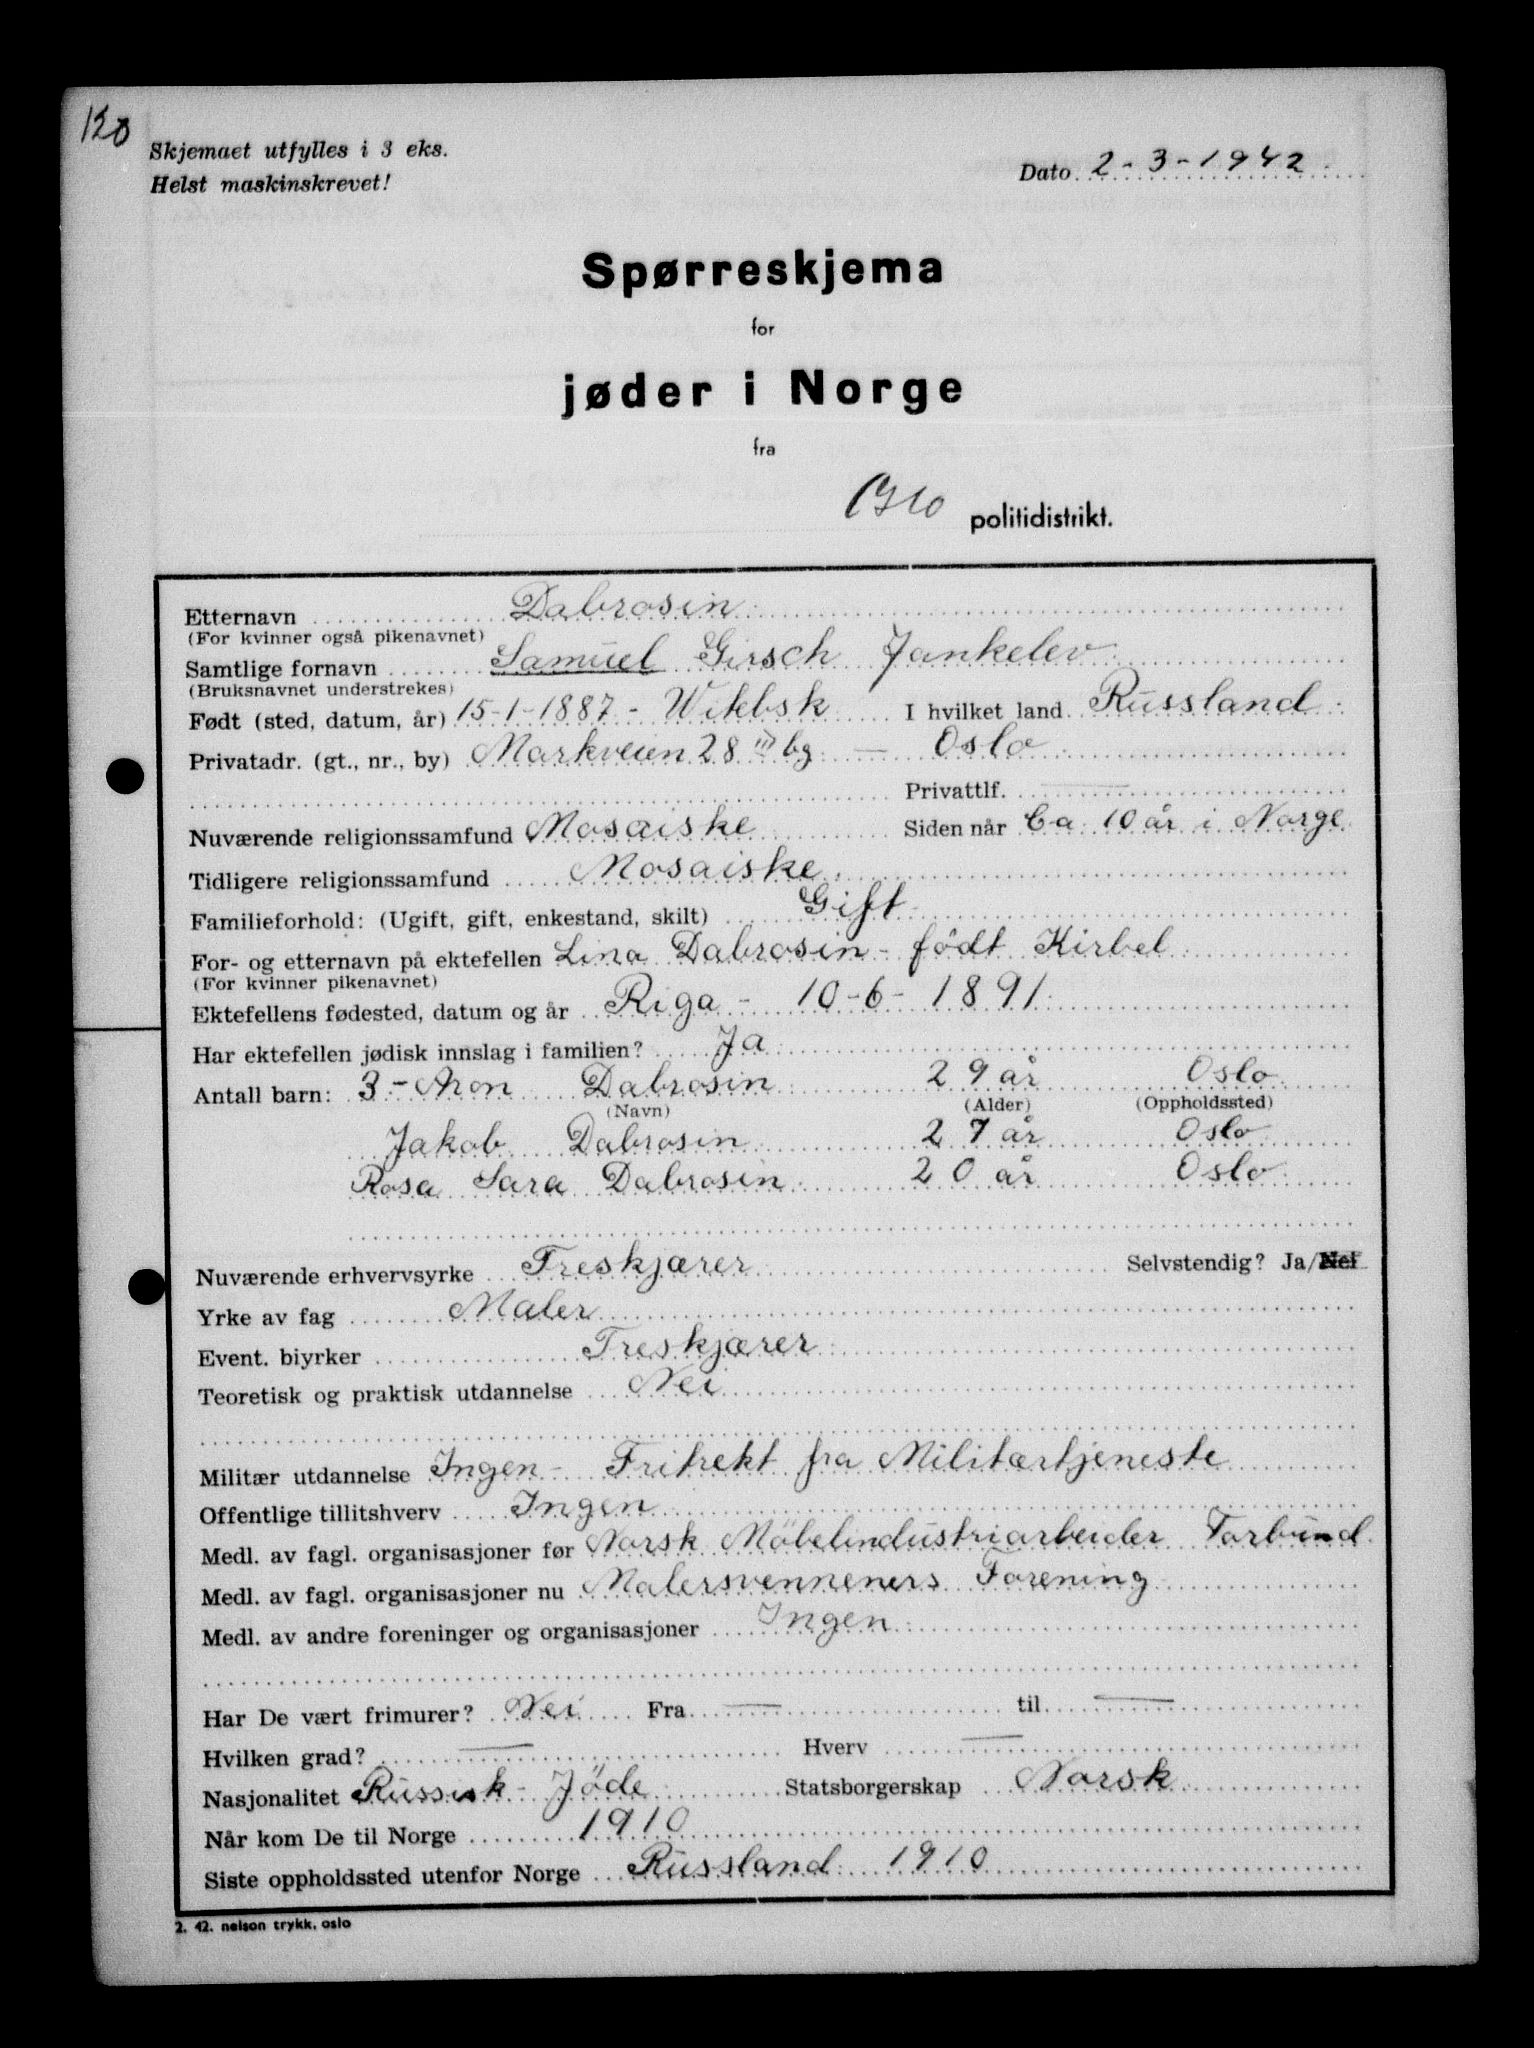 120
Skjemaet utfylles i 3 eks.
Helst maskinskrevet!
Dato 2-3-1942
Spørreskjema
for
jøder i Norge
fra
Oslo politidistrikt.
Etternavn Dabrosin
(For kvinner også pikenavnet)
Samtlige fornavn Samuel Girsch Jankelev
(Bruksnavnet understrekes)
Født (sted, datum, år) 15-1-1887 - Witebsk I hvilket land Russland
Privatadr. (gt., nr., by) Markveien 28 III bg. — Oslo
Privattlf. —
Nuværende religionssamfund Mosaiske Siden når Ca 10 år i Norge
Tidligere religionssamfund Mosaiske
Familieforhold: (Ugift, gift, enkestand, skilt) Gift
For- og etternavn på ektefellen Lina Dabrosin - født Kirbel
(For kvinner pikenavnet)
Ektefellens fødested, datum og år Riga - 10-6-1891
Har ektefellen jødisk innslag i familien? Ja
Antall barn: 3 - Aron Dabrosin 29 år Oslo
(Navn) (Alder) (Oppholdssted)
Jakob Dabrosin 27 år Oslo
Rosa Sara Dabrosin 20 år Oslo
Nuværende erhvervsyrke Treskjærer Selvstendig? Ja/Nei
Yrke av fag Maler
Event. biyrker Treskjærer
Teoretisk og praktisk utdannelse Nei
Militær utdannelse Ingen - Fritrekt fra Militærtjeneste
Offentlige tillitshverv Ingen
Medl. av fagl. organisasjoner før Norsk Möbelindustriarbeider Forbund
Medl. av fagl. organisasjoner nu Malersvenneners Forening
Medl. av andre foreninger og organisasjoner Ingen
Har De vært frimurer? Nei Fra — til —
Hvilken grad? — Hverv —
Nasjonalitet Russisk - Jöde Statsborgerskap Norsk
Når kom De til Norge 1910
Siste oppholdssted utenfor Norge Russland 1910
2. 42. nelson trykk, oslo